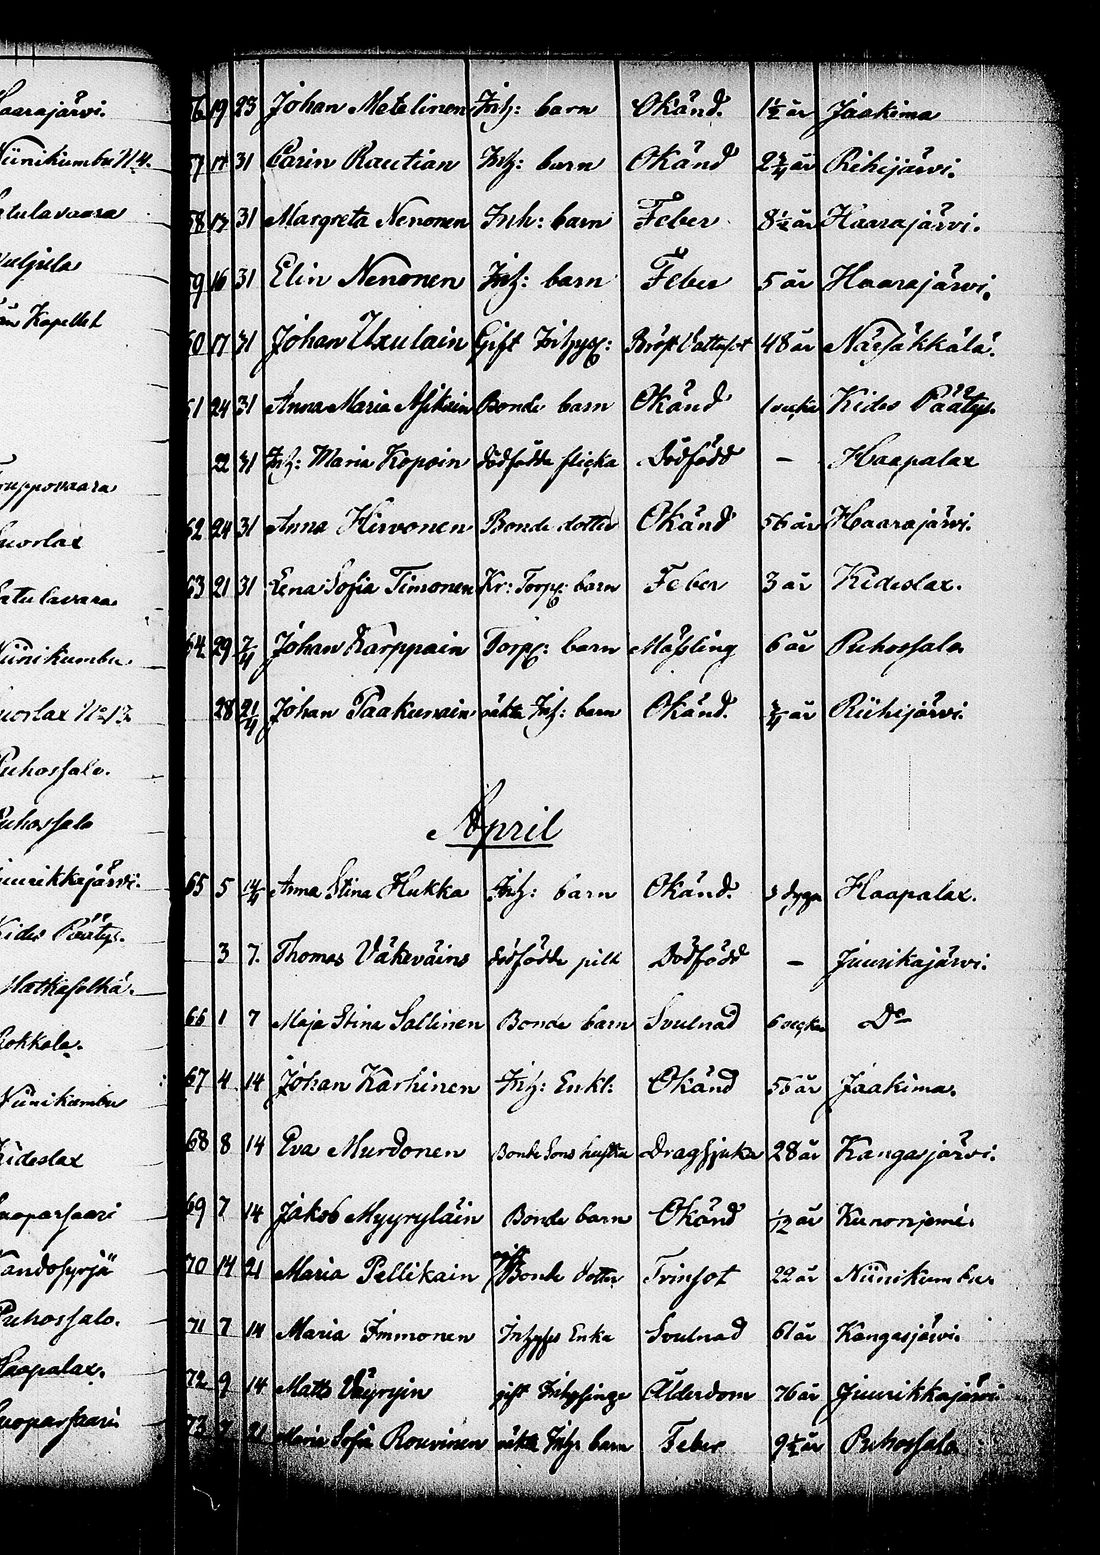 Haarajärvi.
Niinikumbu N4.
Satulavaara
Kapellet
Truppovaara
Suorlax
Satulavaara
Niinikumbu
Suorlax No 13
Puhossalo.
Puhossalo
Juurikkajärvi.
Kides Päätys.
Matkaselkä.
Rokkala.
Niinikumbu
Kideslax
Suoparsaari
Kandosyrjä
Puhossalo.
Haapalax.
Suoparsaari
56 19 23 Johan Matelinen Inh: barn Okänd. 1½ år Jaakima
57 17 31 Carin Rautian Inh: barn Okänd 2¾ år Riihijärvi.
58 17 31 Margreta Nenonen Inh: barn Feber 8½ år Haarajärvi.
59 16 31 Elin Nenonen Inh: barn Feber 5 år Haarajärvi.
60 17 31 Johan Uxulain Gift Inhys: Bröst Vattusot 48 år Närsäkkälä.
61 24 31 Anna Maria Asikain Bonde barn Okänd 1 vecka Kides Päätys.
22 31 Inh: Maria Kopoin dödfödde flicka Dödfödd – Haapalax
62 24 31 Anna Hirvonen Bonde dotter Okänd 56 år Haarajärvi.
63 21 31 Lena Sofia Timonen Kr: Torp: barn Feber 3 år Kideslax.
64 29 7/4 Johan Karppain Torp: barn Mässling 6 år Puhossalo
28 21/4 Johan Paakunain oäkta Inh: barn Okänd. ¾ år Riihijärvi.
April
65 5 14/4 Anna Stina Hukka Inh: barn Okänd. 3 dygn Haapalax.
3 7. Thomas Väkeväins dödfödde pilt Dödfödd – Juurikajärvi.
66 1 7 Maja Stina Sallinen Bonde barn Svulnad 6 veckor Do
67 4 14 Johan Karhinen Inh: Enkl: Okänd 56 år Jaakima.
68 8 14 Eva Murdonen Bonde Sons hustru Dragsjuka 28 år Kangasjärvi.
69 7 14 Jakob Myyryläin Bonde barn Okänd 1/12 år Kunonjemi.
70 14 21 Maria Pellikain gift Bonde dotter Tvinsot 22 år Niinikumbu
71 7 14 Maria Immonen Inhyses Enka Svulnad 61 år Kangasjärvi.
72 9 14 Matts Väyryin gift Inhysinge Ålderdom 76 år Juurikkajärvi
73 7 21 Maria Sofia Rouvinen oäkta Inh: barn Feber 9½ år Puhossalo